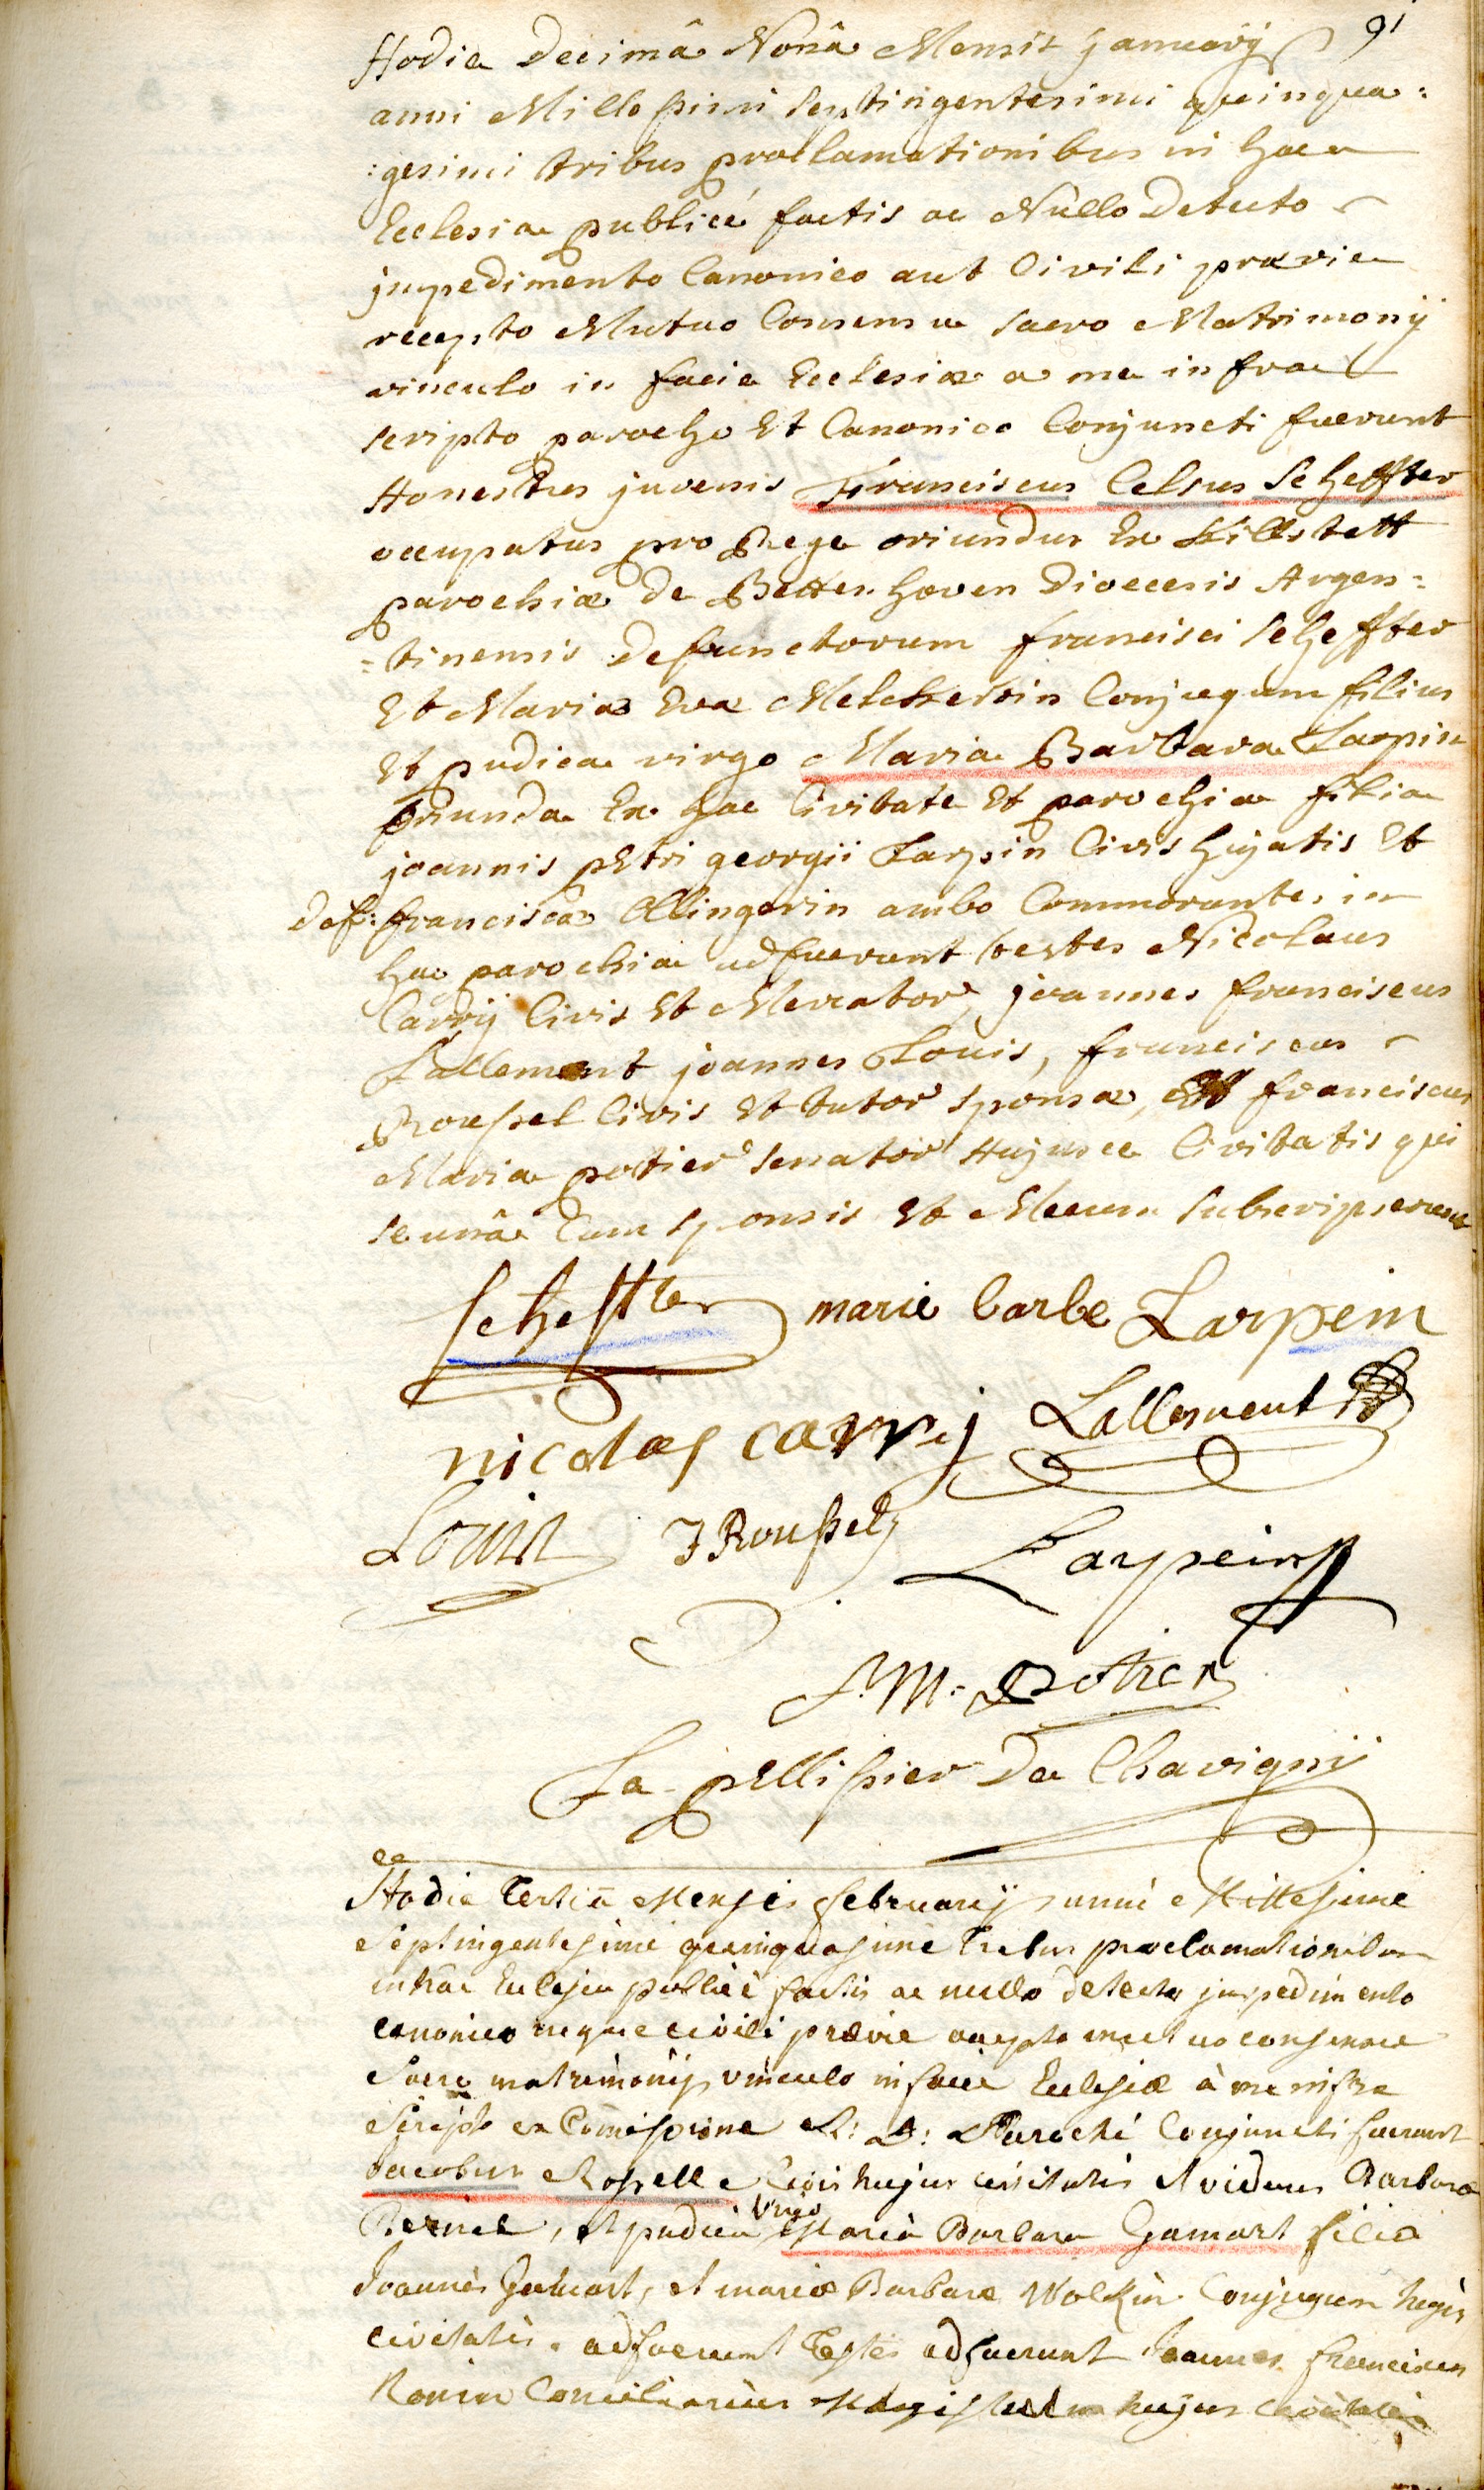 91
Hodie Decimâ Nonâ Mensis januarij
anni Millessimi septingentesimi quinqua:
:gesimi tribus proclamationibus in hac
Ecclesia publicé factis ac Nùllo Detecto
jmpedimento Canonico aut Civili prævie
recepto Mutuo Consensu sacro Matrimonij
vinculo in facie Ecclesiæ a me infra
scripto parocho Et Canonico Conjuncti fuerunt
Honestus juvenis Franciscus Celsus Scheffter
occupatus pro Rege oriundus Ex Killstett
parochiæ de Bettenhoven Dioecesis Argen=
=tinensis defunctorum francisci Scheffter
Et Mariæ Eva Melckertin Conjugum filius
Et pudica virgo Maria Barbara Larpin
oriunda Ex hac Civitate Et parochia filia
joannis pEtri georgii Larpin Civis hujatis Et
Def: franciscæ Ollingerin ambo Commorantes in
hac parochia adfuerunt testes Nicolaus
Carrij Civis Et Mercator, joannes franciscus
Lallement joannes Louis, franciscus
Roussel Civis Et tutor sponsæ, Et franciscus
Maria potier senator Hujusce Civitatis qui
se unâ Cum sponsis Et Mecum subscripserunt
Scheffter marie barbe Larpein
nicolas carrij Lallement
Louis J Roussel Larpein
f. M. potier
Le pEllissier De Chavignij
Hodie tertiâ Mensis februarij anni Millesimi
Septingentesimi quinquagesimi tribus proclamationibus
in hac Ecclesia publicè factis ac nullo detecto jmpedimento
canonico neque civili prævie accepto mutuo consensu
Sacro matrimonij vinculo in facie Ecclesiæ à me infra
Scripto ex Comissione R: D: Parochi Conjuncti fuerunt
Jacobus Rossell Civis hujus civitatis viduus Barbaræ
Bernel, et pudica Virgo Maria Barbara Gamart filia
Joannis Gamart, et mariæ Barbaræ Wolckin Conjugum hujus
civitatis. adfuerunt Testes adfuerunt Joannes franciscus
Ronin Consiliarius Magistratus hujus civitatis